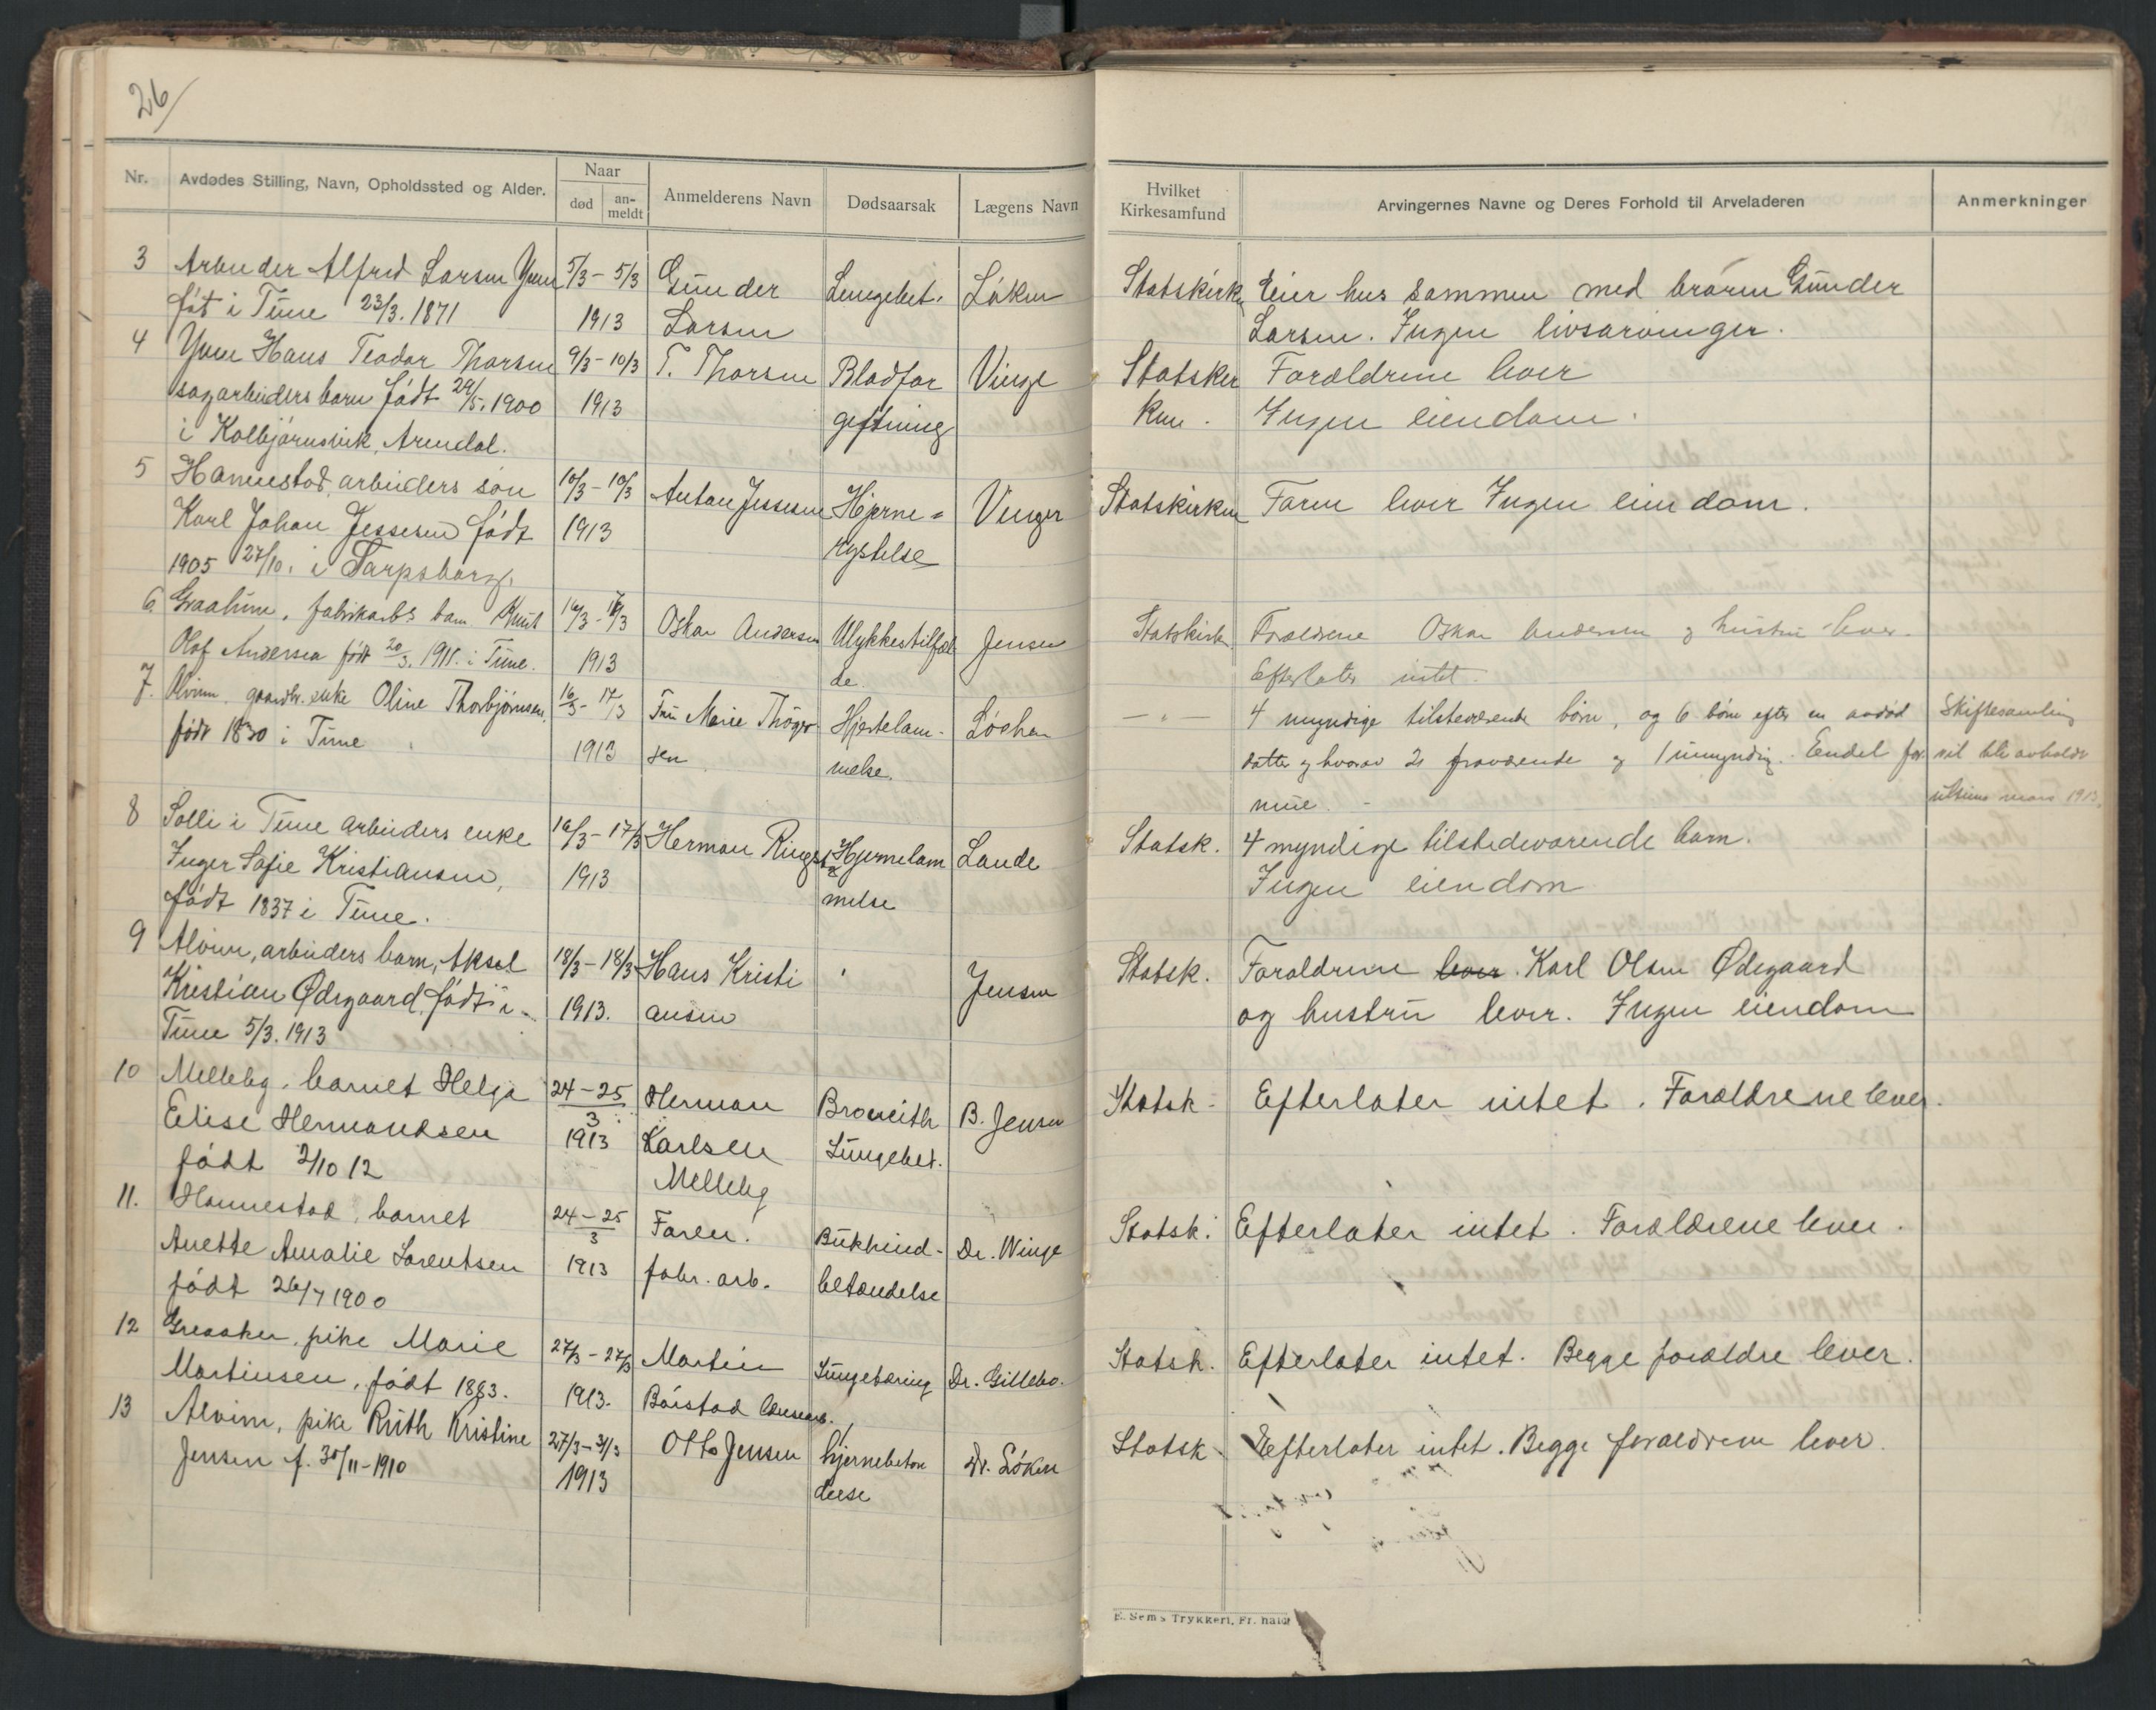 26/
Nr.
Avdødes Stilling, Navn, Opholdssted og Alder.
Naar
død
an-
meldt
Anmelderens Navn
Dødsaarsak
Lægens Navn
Hvilket
Kirkesamfund
Arvingernes Navne og Deres Forhold til Arveladeren
Anmerkninger
3 Arbeider Alfred Larsen 5/3 - 5/3 Gunder Lungebet. Løken Statskirk Eier hus sammen med broren Gunder
føt i Tune 23/3. 1871 1913 Larsen Larsen. Ingen livsarvinger.
4 Hans Teodor Thorsen 9/3 - 10/3 T. Thorsen Blodfor Vinge Statskir Forældrene lever
sagarbeiders barn født 29/5. 1900 1913 giftning ken. Ingen eiendom.
i Kolbjørnsvik, Arendal.
5 Hannestad, arbeiders søn 10/3 - 10/3 Anton Jessesen Hjerne= Vinger Statskirken Faren lever Ingen eiendom.
Karl Johan Jessesen født 1913 rystelse
1905 27/10. i Sarpsborg.
6 Graatune, fabrikarbs barn Knut 16/3 - 17/3 Oskar Andersen Ulykkestilfæl Jensen Statskirk Forældrene Oskar Andersen og hustru lever.
Olaf Andersen født 20/3. 1911. i Tune. 1913 de. Efterlater intet.
7. Alvim gaardbr. enke Oline Thorbjørnsen, 16/3 - 17/3 Fru Marie Thøger- Hjertelam- Løchen — " — 4 myndige tilstedeværende børn, og 6 børn efter en avdød Skiftesamling
født 1830 i Tune 1913 sen melse. datter og hvorav 2 fraværende og 1 umyndig. Endel for- vil bli avholdt
mue. ultimo mars 1913.
8 Solli i Tune arbeiders enke 16/3 - 17/3 Herman Ringst Hjernelam Lande Statsk. 4 myndige tilstedeværende barn.
Inger Sofie Kristiansen, 1913 melse Ingen eiendom
født 1837 i Tune.
9 Alvim, arbeiders barn, Aksel 18/3 - 18/3 Hans Kristi Jensen Statsk. Forældrene lever. Karl Olsen Ødegaard
Kristian Ødegaard, født i 1913. ansen og hustru lever. Ingen eiendom
Tune 5/3. 1913
10 Melleby, barnet Helga 24 - 25 Herman B. Jensen Statsk - Efterlater intet. Forældrene lever.
Elise Hermandsen 3 1913 Karlsen Lungebet.
født 2/10 12 Melleby
11. Hannestad, barnet 24 - 25 Faren. Bukhind- Dr. Winge Statsk. Efterlater intet. Forældrene lever.
Anette Amalie Lorentsen 3 1913 fabr. arb. betændelse
født 26/7 1900
12 Greaaker, pike Marie 27/3 - 27/3 Martin Lungetæring Dr. Gillebo. Statsk. Efterlater intet. Begge forældre lever.
Martinsen, født 1883. 1913. Børstad
13 Alvim, pike Ruth Kristine 27/3 - 31/3 Otto Jensen hjernebetæn Dr. Løken Statsk Efterlater intet. Begge forældrene lever.
Jensen f. 30/11 - 1910 1913 delse
E. Sem's Trykkeri, Fr. hald